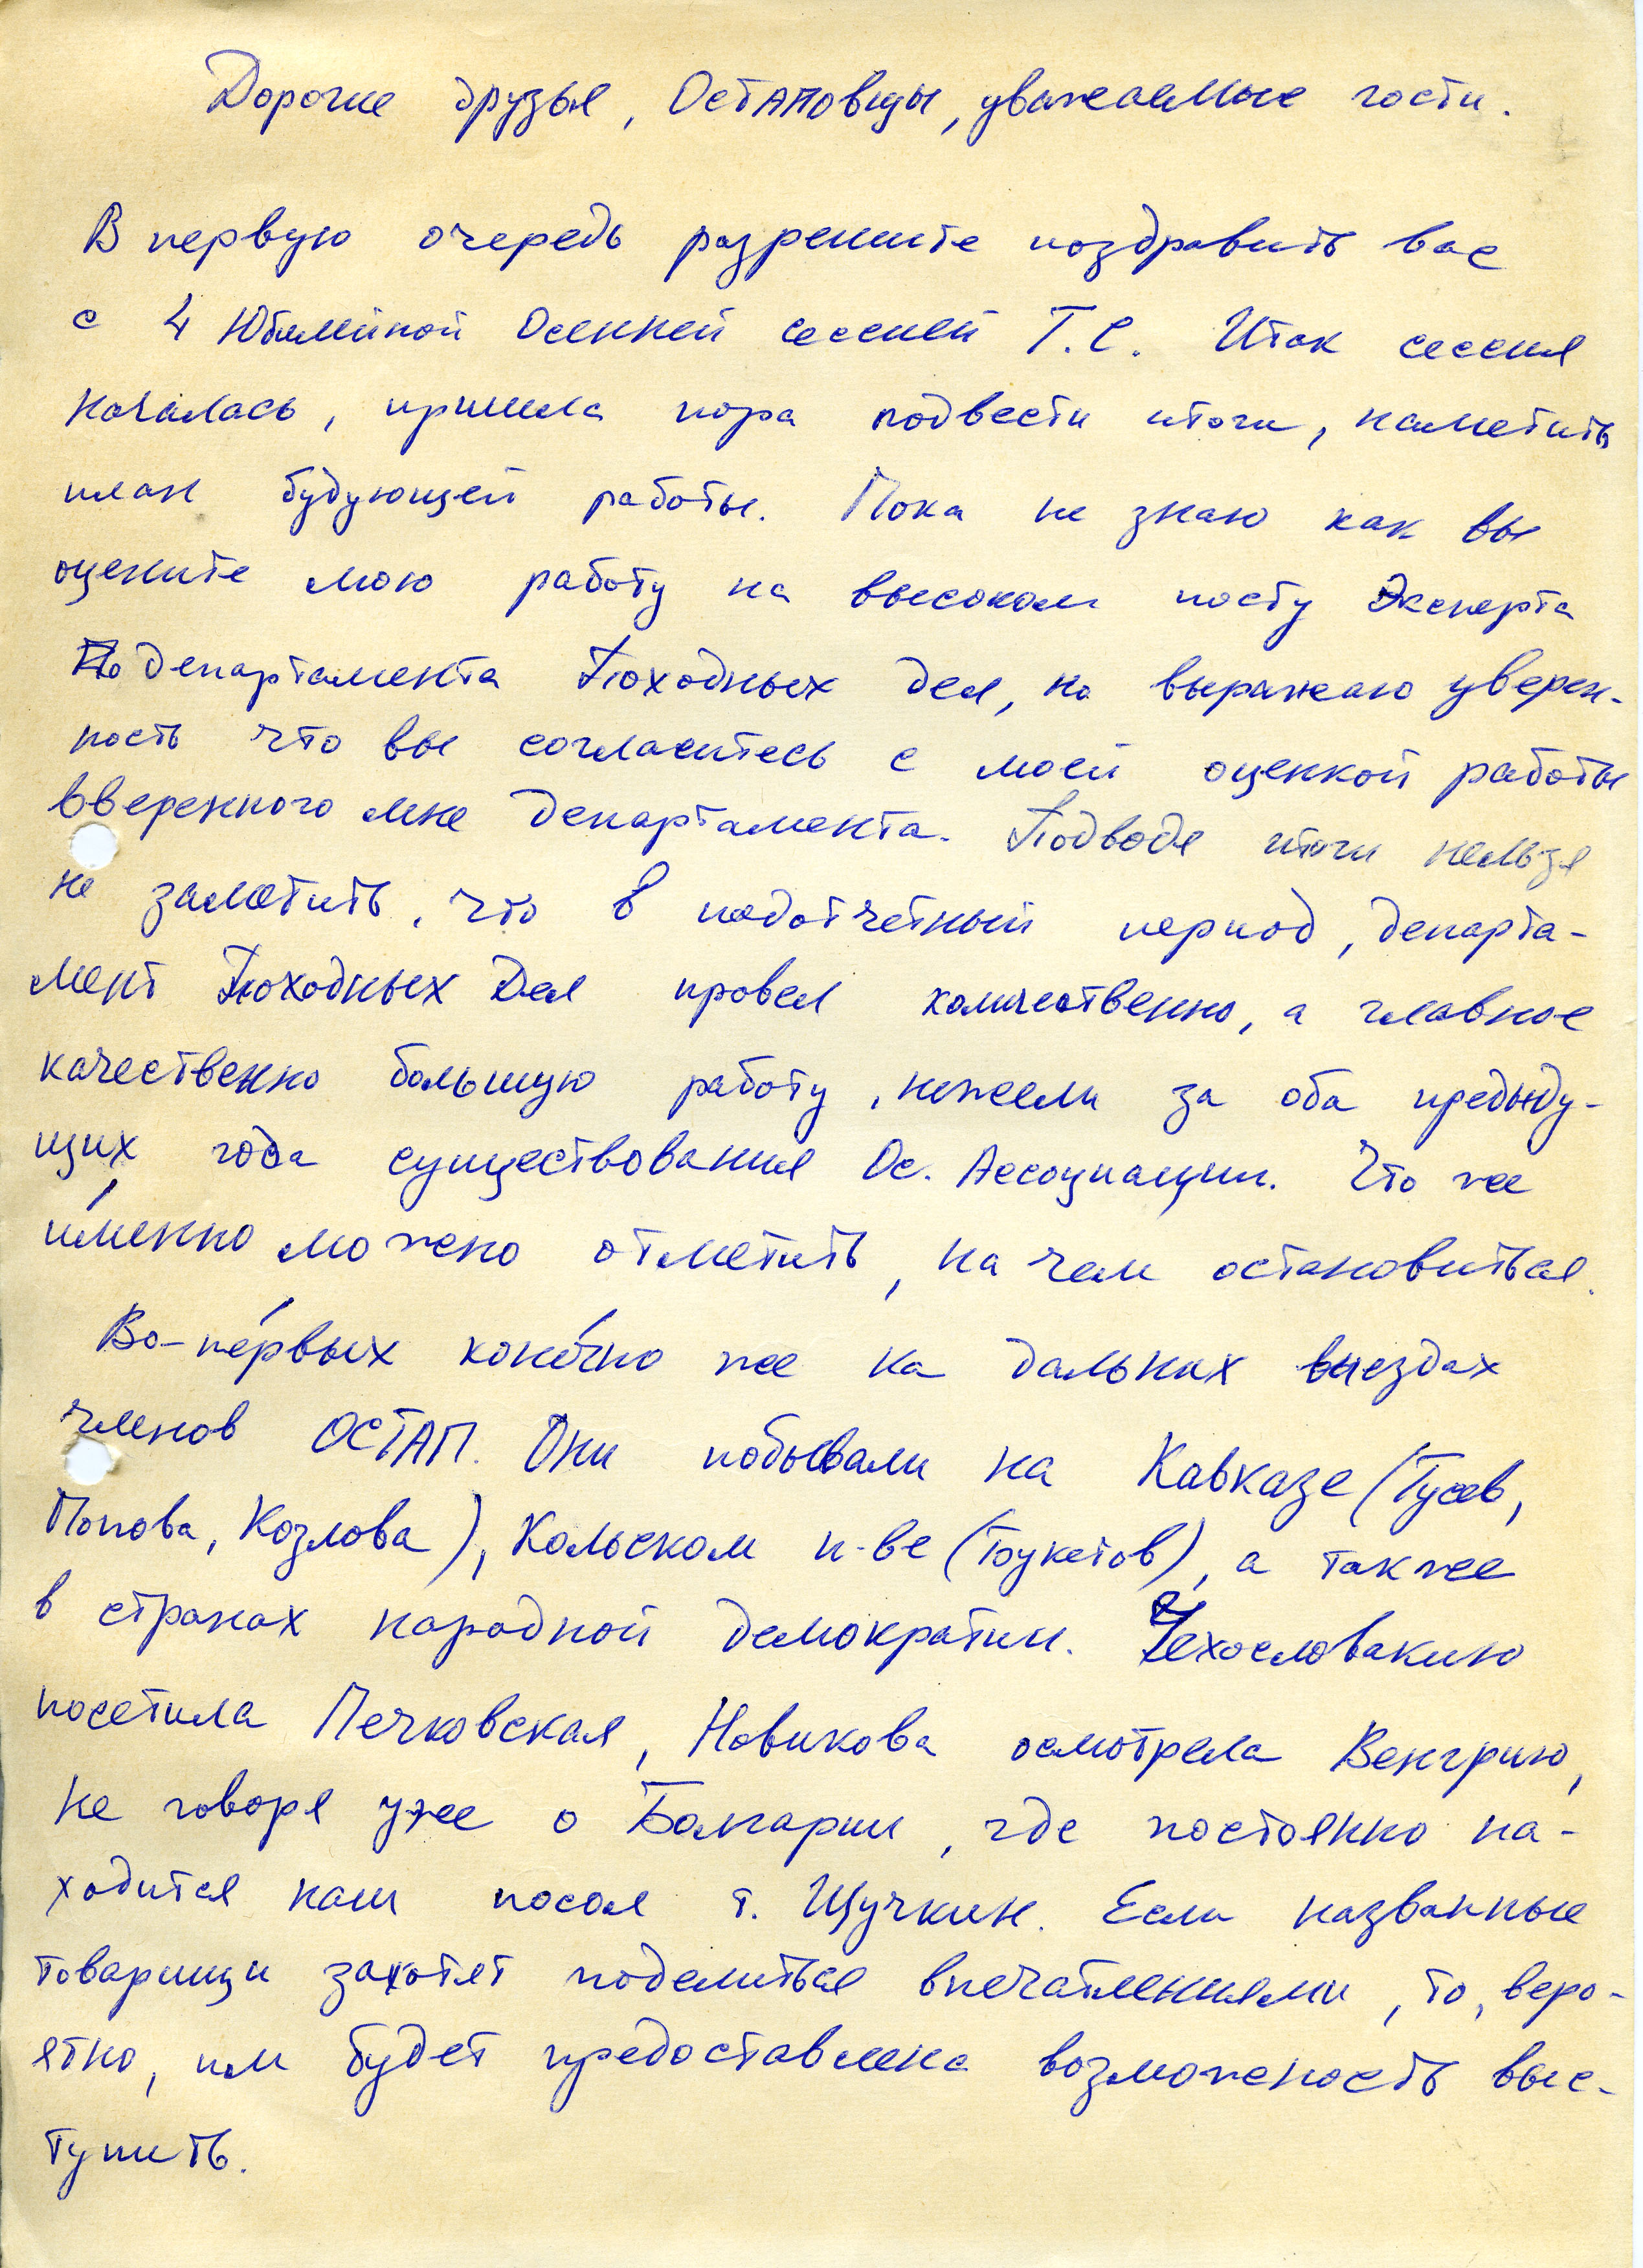 Дорогие друзья, Остаповцы, уважаемые гости.
В первую очередь разрешите поздравить вас
с 4 Юбилейной Осенней сессией Т.С. Итак сессия
началась, пришла пора подвести итоги, наметить
план будующей работы. Пока не знаю как вы
оцените мою работу на высоком посту Эксперта
По департамента Походных дел, но выражаю уверен-
ность что вы согласитесь с моей оценкой работы
вверенного мне департамента. Подводя итоги нельзя
не заметить, что в подотчетный период, департа-
мент Походных Дел провел количественно, а главное
качественно большую работу, нежели за оба предыду-
щих года существования Ос. Ассоциации. Что же
именно можно отметить, на чем остановиться.
Во-первых конечно же на дальних выездах
членов ОСТАП. Они побывали на Кавказе (Гусев,
Попова, Козлова), Кольском п-ве (Букетов), а также
в странах народной демократии. Чехословакию
посетила Печковская, Новикова осмотрела Венгрию,
не говоря уже о Болгарии, где постоянно на-
ходится наш посол т. Щучкин. Если названные
товарищи захотят поделиться впечатлениями, то, веро-
ятно, им будет предоставлена возможность выс-
тупить.